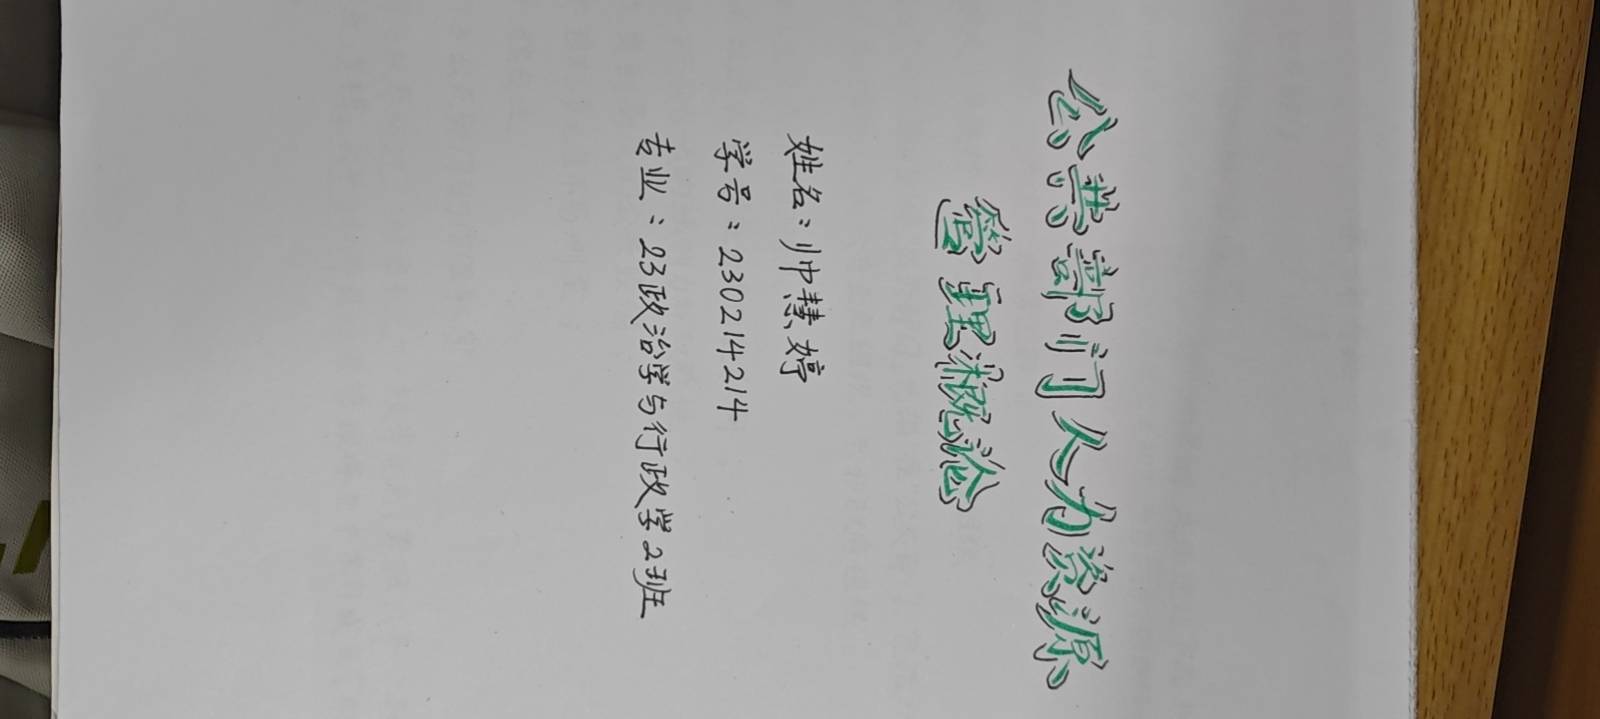 公共部门人力资源
管理概论
姓名：帅慧婷
学号：230214214
专业：23政治学与行政学2班